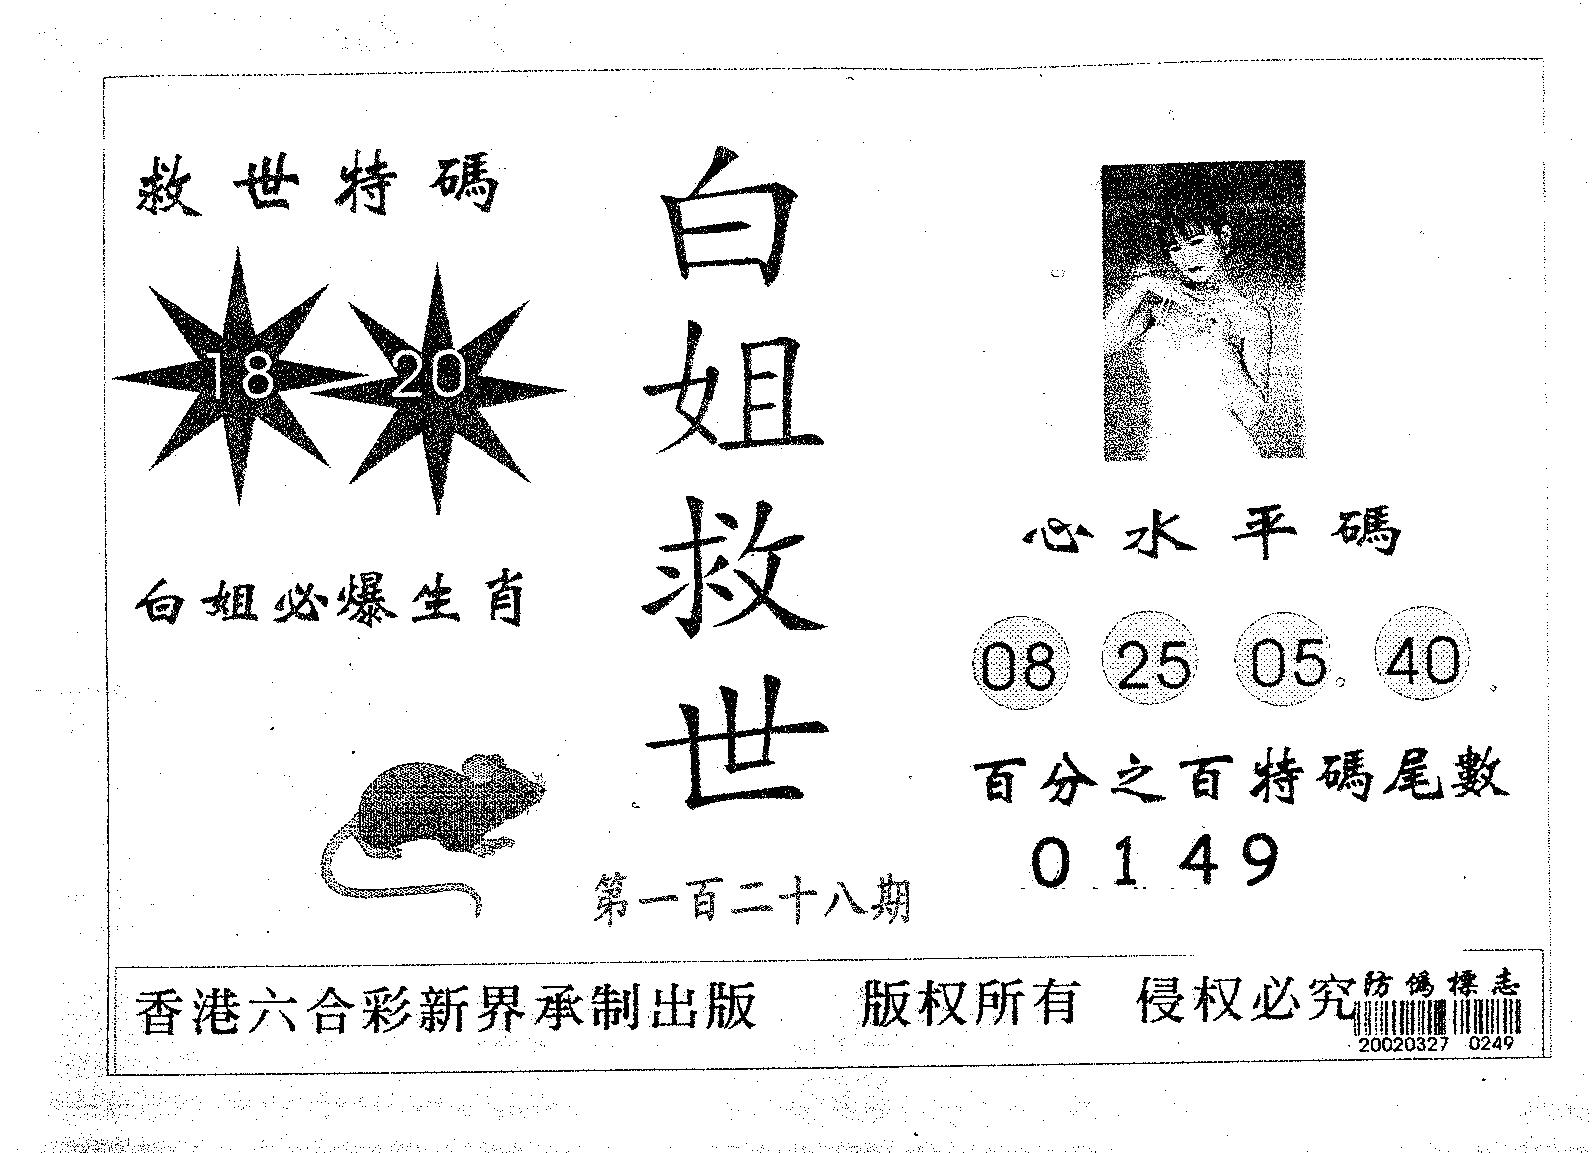 救世特碼
18 20
白姐必爆生肖
白姐救世
第一百二十八期
心水平碼
08 25 05 40
百分之百特碼尾數
0 1 4 9
香港六合彩新界承制出版 版权所有 侵权必究
防偽標志
20020327 0249